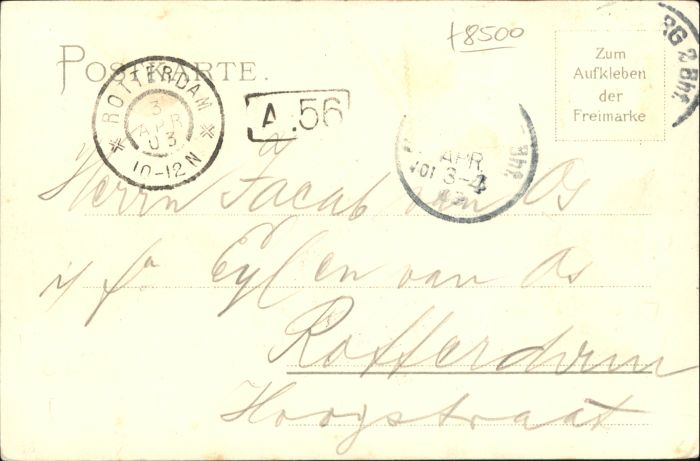 +8500
POSTKARTE.
Zum
Aufkleben
der
Freimarke
RG 2 Bhf.
ROTTERDAM
3
APR
03
10-12 N
A.56
APR.
3-4
Bhf.
Herrn Jacob van Os
i/ fa Eyl en van Os
Rotterdam
Hoogstraat